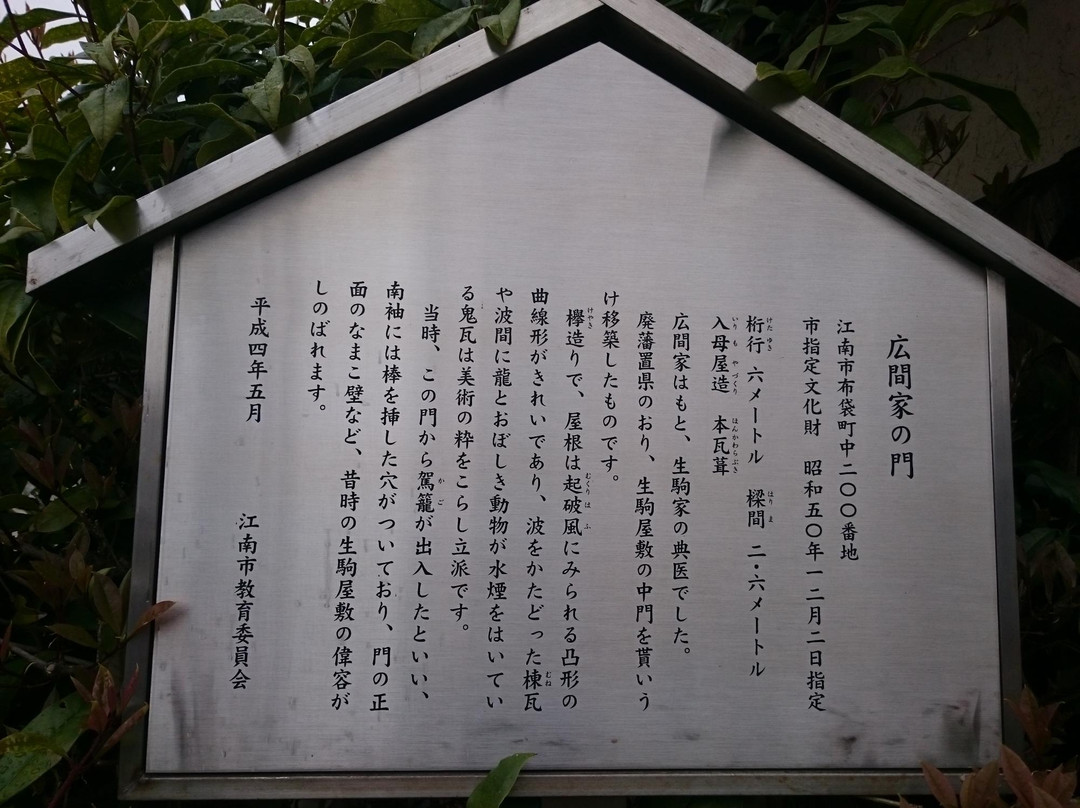 広間家の門
江南市布袋町中二〇〇番地
市指定文化財 昭和五〇年一二月二日指定
桁行 六メートル 樑間 二・六メートル
入母屋造 本瓦葺
広間家はもと、生駒家の典医でした。
廃藩置県のおり、生駒屋敷の中門を貰いう
け移築したものです。
欅造りで、屋根は起破風にみられる凸形の
曲線形がきれいであり、波をかたどった棟瓦
や波間に龍とおぼしき動物が水煙をはいてい
る鬼瓦は美術の粋をこらし立派です。
当時、この門から駕籠が出入したといい、
南袖には棒を挿した穴がついており、門の正
面のなまこ壁など、昔時の生駒屋敷の偉容が
しのばれます。
平成四年五月
江南市教育委員会